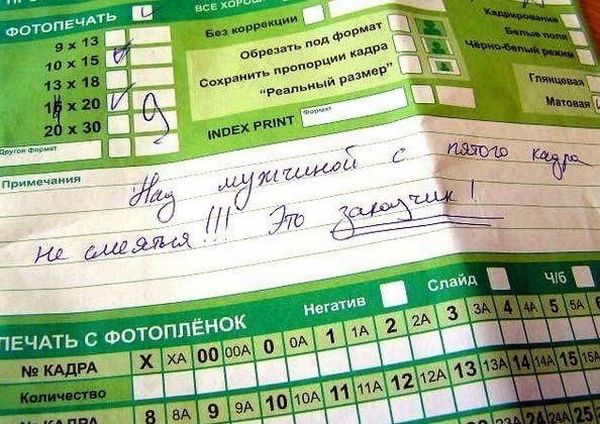 ВСЕ ХОРОШ
ФОТОПЕЧАТЬ
9 x 13
10 x 15
13 x 18
x 20
20 x 30
Другой формат
Без коррекции
Обрезать под формат
Сохранить пропорции кадра
"Реальный размер"
INDEX PRINT
Формат
Кадрирование
Белые поля
Чёрно-белый режим
Глянцевая
Матовая
Примечания
Над мужчиной с пятого кадра
не смеяться!!! Это заказчик!
Негатив Слайд Ч/б
ПЕЧАТЬ С ФОТОПЛЁНОК
№ КАДРА X XA 00 00A 0 0A 1 1A 2 2A 3 3A 4 4A 5 5A
Количество
№ КАДРА 8 8A 9 9A 10 10A 11 11A 12 12A 13 13A 14 14A 15 15A
Количество
23 23A 24 24A 25